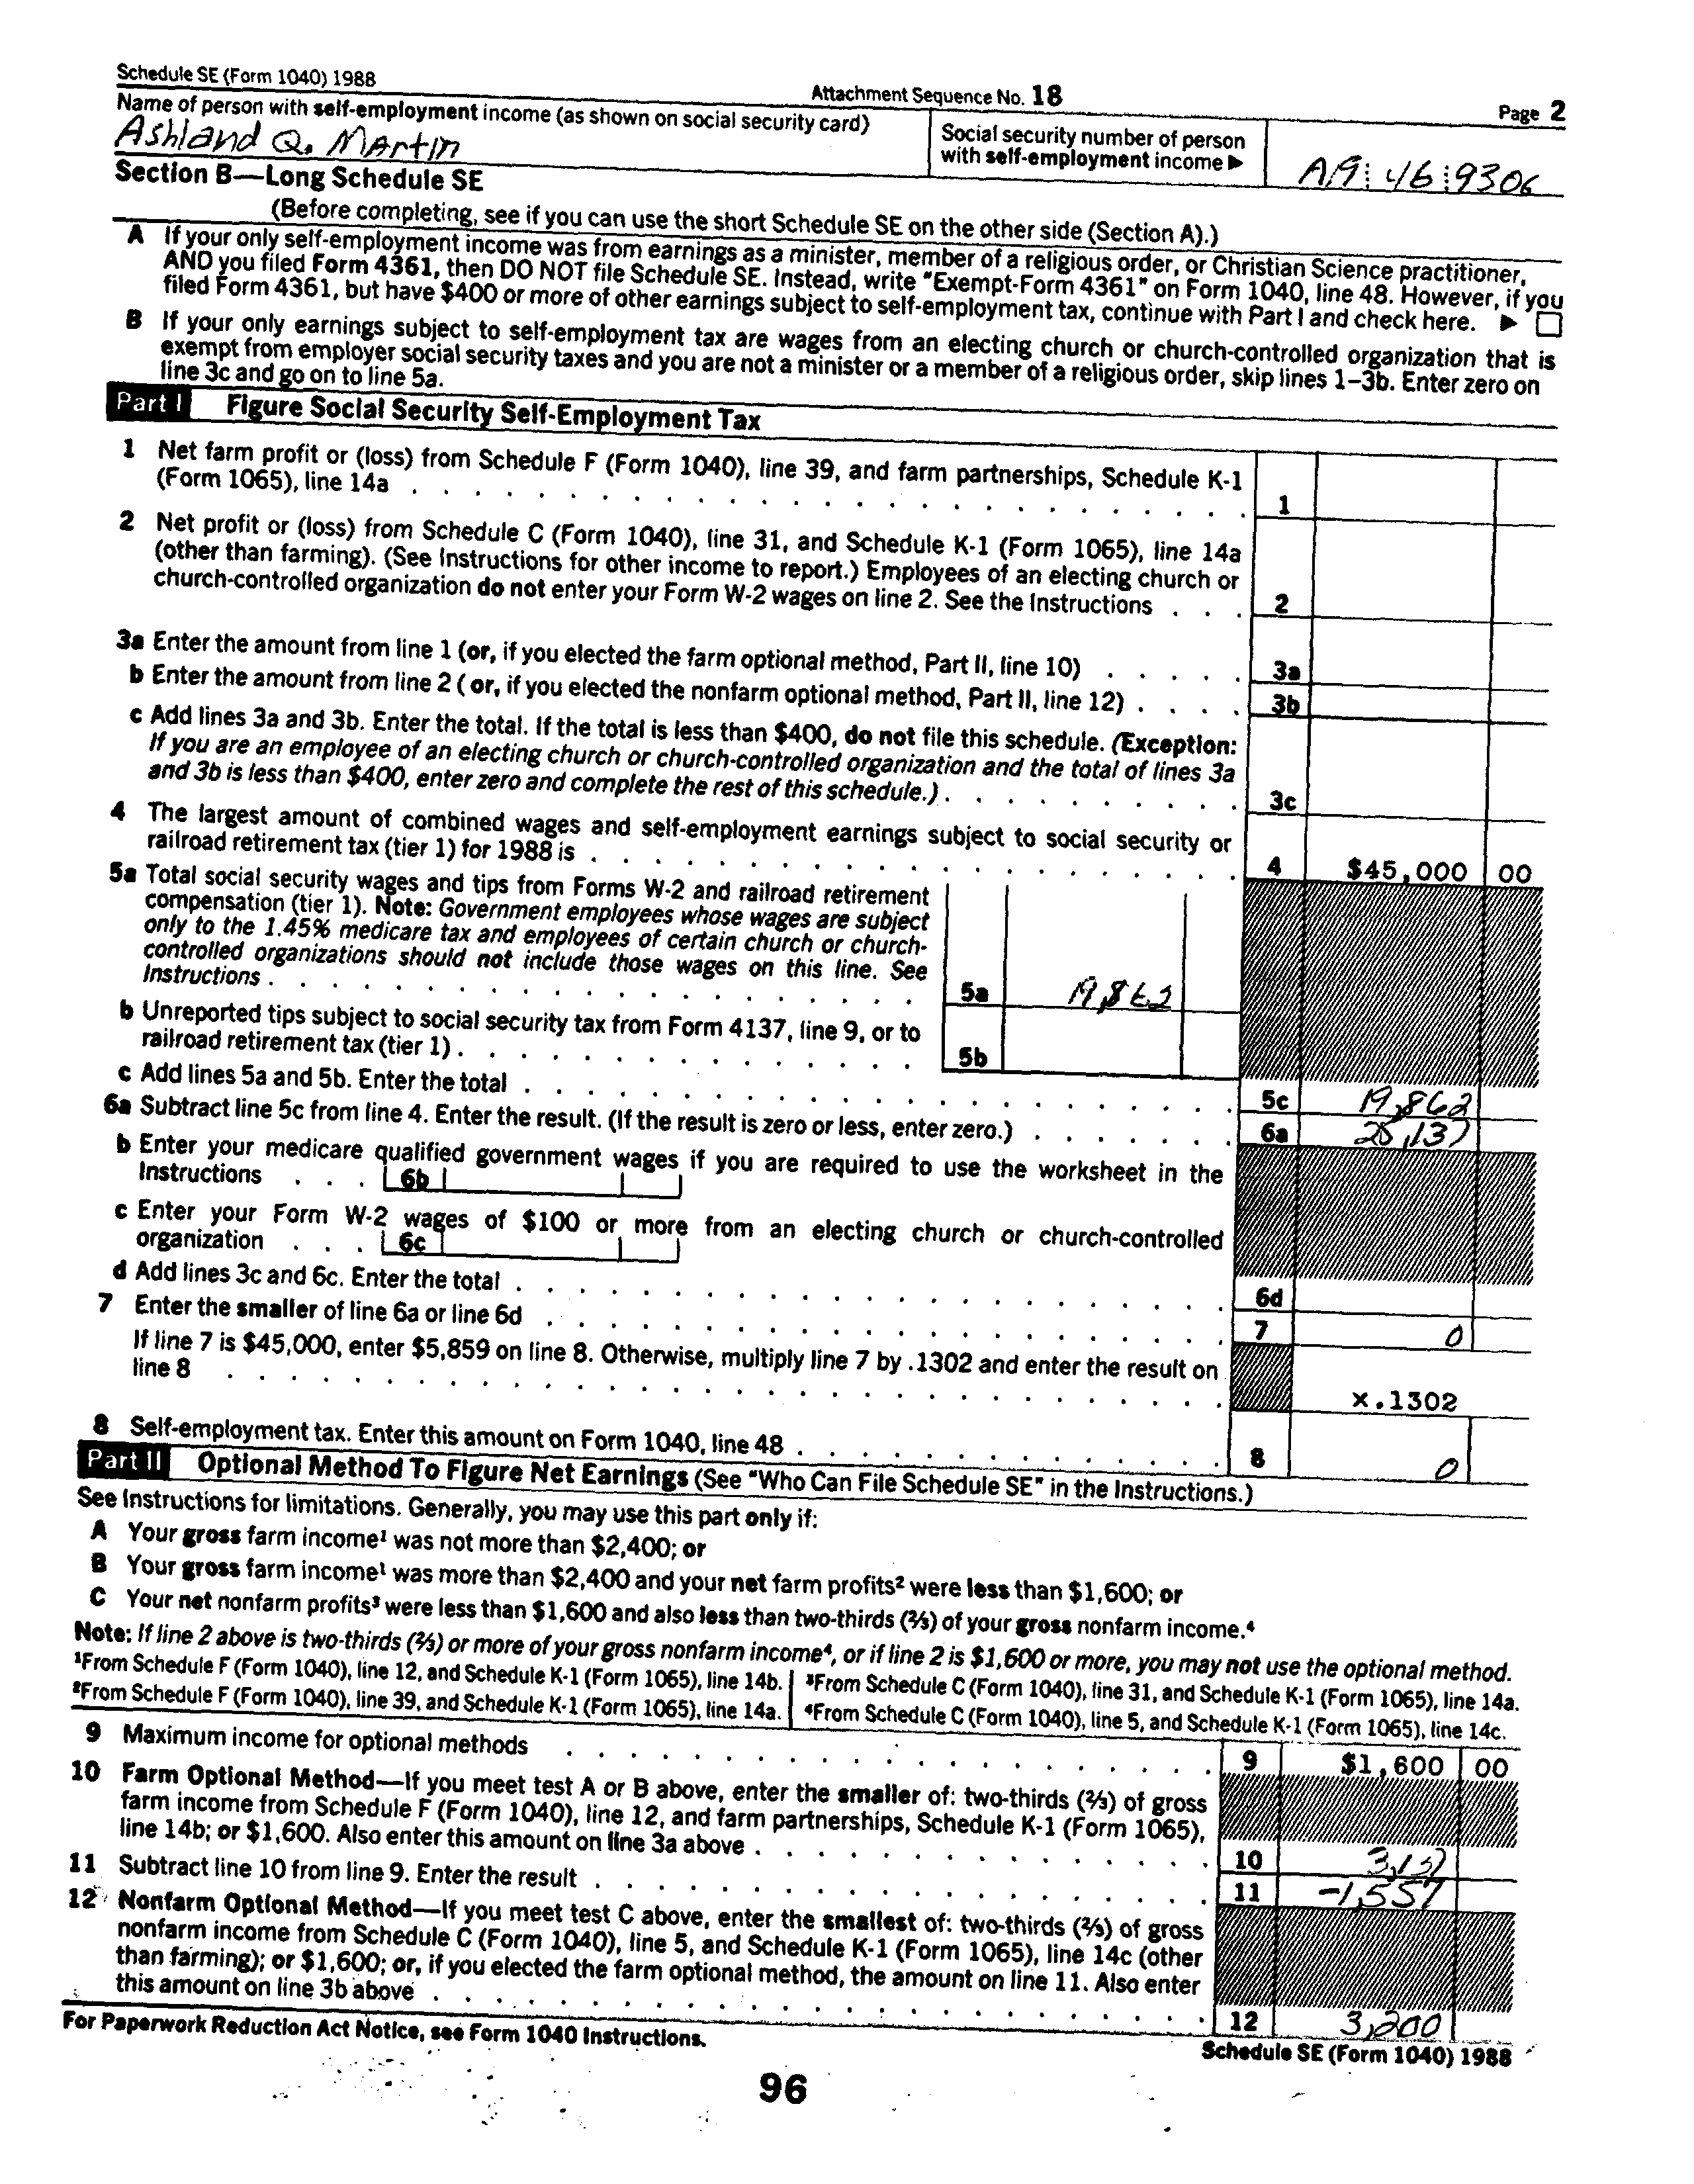 Schedule SE (Form 1040) 1988
Attachment Sequence No. 18
Page 2
Name of person with self-employment income (as shown on social security card)
Ashland Q. Martin
Social security number of person
with self-employment income ▶
46 9306
Section B—Long Schedule SE
(Before completing, see if you can use the short Schedule SE on the other side (Section A).)
A If your only self-employment income was from earnings as a minister, member of a religious order, or Christian Science practitioner,
AND you filed Form 4361, then DO NOT file Schedule SE. Instead, write "Exempt-Form 4361" on Form 1040, line 48. However, if you
filed Form 4361, but have $400 or more of other earnings subject to self-employment tax, continue with Part I and check here. ▶
B If your only earnings subject to self-employment tax are wages from an electing church or church-controlled organization that is
exempt from employer social security taxes and you are not a minister or a member of a religious order, skip lines 1–3b. Enter zero on
line 3c and go on to line 5a.
Part I Figure Social Security Self-Employment Tax
1 Net farm profit or (loss) from Schedule F (Form 1040), line 39, and farm partnerships, Schedule K-1
(Form 1065), line 14a . . . 1
2 Net profit or (loss) from Schedule C (Form 1040), line 31, and Schedule K-1 (Form 1065), line 14a
(other than farming). (See Instructions for other income to report.) Employees of an electing church or
church-controlled organization do not enter your Form W-2 wages on line 2. See the Instructions . . . 2
3a Enter the amount from line 1 (or, if you elected the farm optional method, Part II, line 10) . . . . . 3a
b Enter the amount from line 2 ( or, if you elected the nonfarm optional method, Part II, line 12) . . . . 3b
c Add lines 3a and 3b. Enter the total. If the total is less than $400, do not file this schedule. (Exception:
If you are an employee of an electing church or church-controlled organization and the total of lines 3a
and 3b is less than $400, enter zero and complete the rest of this schedule.) . . . 3c
4 The largest amount of combined wages and self-employment earnings subject to social security or
railroad retirement tax (tier 1) for 1988 is . . . 4 $45,000 00
5a Total social security wages and tips from Forms W-2 and railroad retirement
compensation (tier 1). Note: Government employees whose wages are subject
only to the 1.45% medicare tax and employees of certain church or church-
controlled organizations should not include those wages on this line. See
Instructions . . . 5a 19,862
b Unreported tips subject to social security tax from Form 4137, line 9, or to
railroad retirement tax (tier 1) . . . 5b
c Add lines 5a and 5b. Enter the total . . . 5c 19,862
6a Subtract line 5c from line 4. Enter the result. (If the result is zero or less, enter zero.) . . . 6a 25,137
b Enter your medicare qualified government wages if you are required to use the worksheet in the
Instructions . . . 6b
c Enter your Form W-2 wages of $100 or more from an electing church or church-controlled
organization . . . 6c
d Add lines 3c and 6c. Enter the total . . . 6d
7 Enter the smaller of line 6a or line 6d . . . 7 0
If line 7 is $45,000, enter $5,859 on line 8. Otherwise, multiply line 7 by .1302 and enter the result on
line 8 . . . x.1302
8 Self-employment tax. Enter this amount on Form 1040, line 48 . . . 8 0
Part II Optional Method To Figure Net Earnings (See "Who Can File Schedule SE" in the Instructions.)
See Instructions for limitations. Generally, you may use this part only if:
A Your gross farm income¹ was not more than $2,400; or
B Your gross farm income¹ was more than $2,400 and your net farm profits² were less than $1,600; or
C Your net nonfarm profits³ were less than $1,600 and also less than two-thirds (⅔) of your gross nonfarm income.⁴
Note: If line 2 above is two-thirds (⅔) or more of your gross nonfarm income⁴, or if line 2 is $1,600 or more, you may not use the optional method.
¹From Schedule F (Form 1040), line 12, and Schedule K-1 (Form 1065), line 14b. ³From Schedule C (Form 1040), line 31, and Schedule K-1 (Form 1065), line 14a.
²From Schedule F (Form 1040), line 39, and Schedule K-1 (Form 1065), line 14a. ⁴From Schedule C (Form 1040), line 5, and Schedule K-1 (Form 1065), line 14c.
9 Maximum income for optional methods . . . 9 $1,600 00
10 Farm Optional Method—If you meet test A or B above, enter the smaller of: two-thirds (⅔) of gross
farm income from Schedule F (Form 1040), line 12, and farm partnerships, Schedule K-1 (Form 1065),
line 14b; or $1,600. Also enter this amount on line 3a above . . . 10 3,157
11 Subtract line 10 from line 9. Enter the result . . . 11 -1,557
12 Nonfarm Optional Method—If you meet test C above, enter the smallest of: two-thirds (⅔) of gross
nonfarm income from Schedule C (Form 1040), line 5, and Schedule K-1 (Form 1065), line 14c (other
than farming); or $1,600; or, if you elected the farm optional method, the amount on line 11. Also enter
this amount on line 3b above . . . 12 3,200
For Paperwork Reduction Act Notice, see Form 1040 Instructions.
Schedule SE (Form 1040) 1988
96